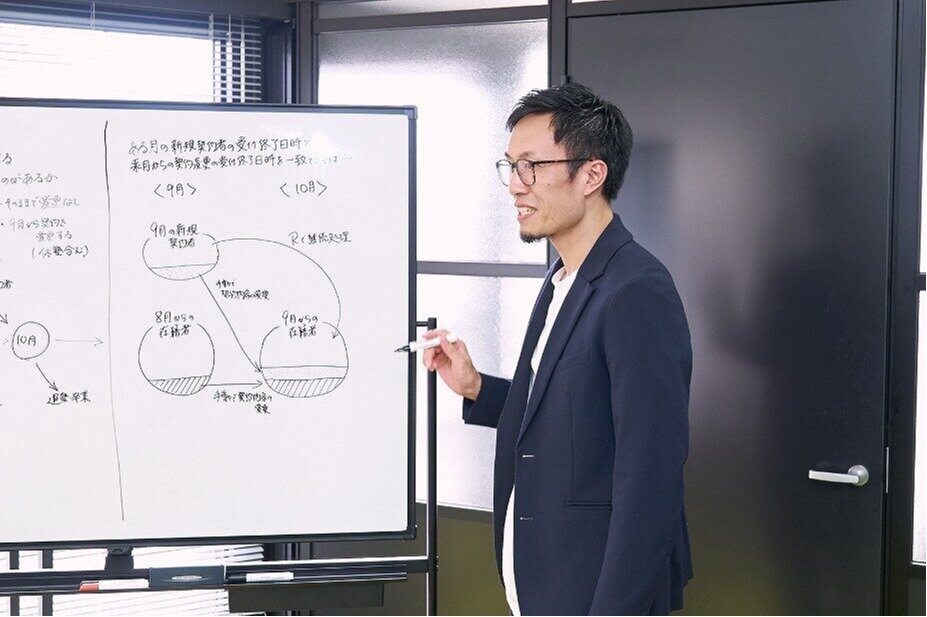 のがあるか
・そのままで変更なし
・9月から契約を
変更する
(休塾含む)
10月
退塾・卒業
ある月の新規契約者の受付終了日時と
来月からの契約変更の受付終了日時を一致
<9月>
<10月>
9月の新規
契約者
Rで継続処理
手動で
契約内容の変更
8月からの
在籍者
9月からの
在籍者
手動で契約内容の
変更